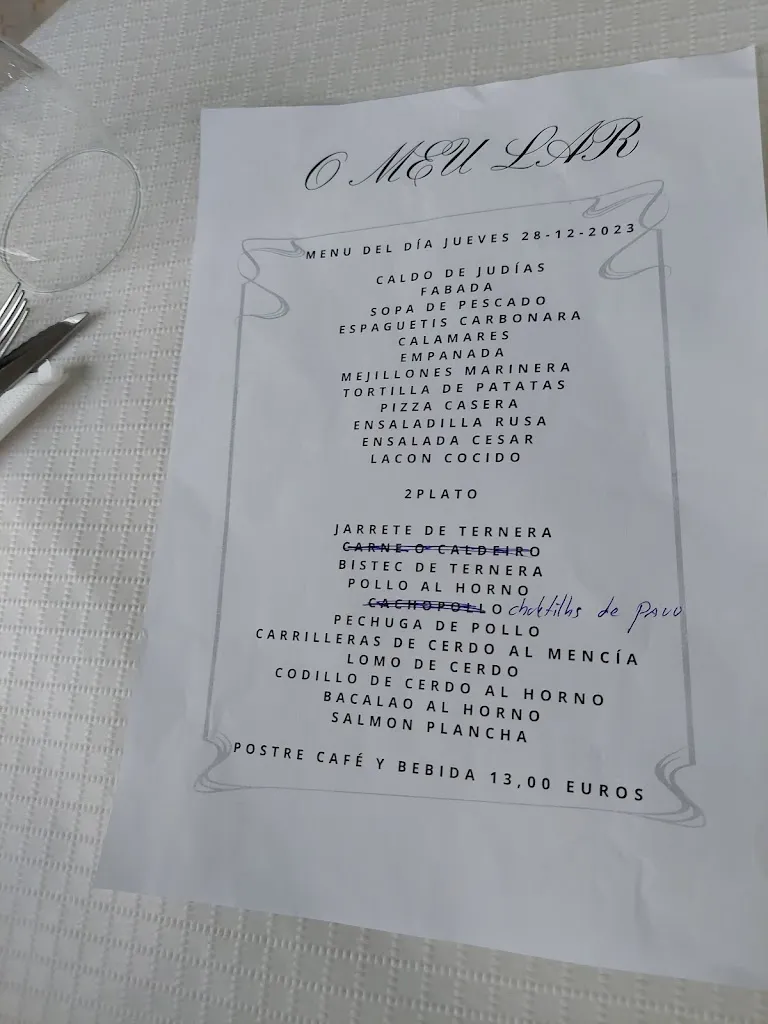 O MEU LAR
MENU DEL DÍA JUEVES 28-12-2023
CALDO DE JUDÍAS
FABADA
SOPA DE PESCADO
ESPAGUETIS CARBONARA
CALAMARES
EMPANADA
MEJILLONES MARINERA
TORTILLA DE PATATAS
PIZZA CASERA
ENSALADILLA RUSA
ENSALADA CESAR
LACON COCIDO
2PLATO
JARRETE DE TERNERA
CARNE O CALDEIRO
BISTEC DE TERNERA
POLLO AL HORNO
CACHOPOLLO de pavo
PECHUGA DE POLLO
CARRILLERAS DE CERDO AL MENCÍA
LOMO DE CERDO
CODILLO DE CERDO AL HORNO
BACALAO AL HORNO
SALMON PLANCHA
POSTRE CAFÉ Y BEBIDA 13,00 EUROS